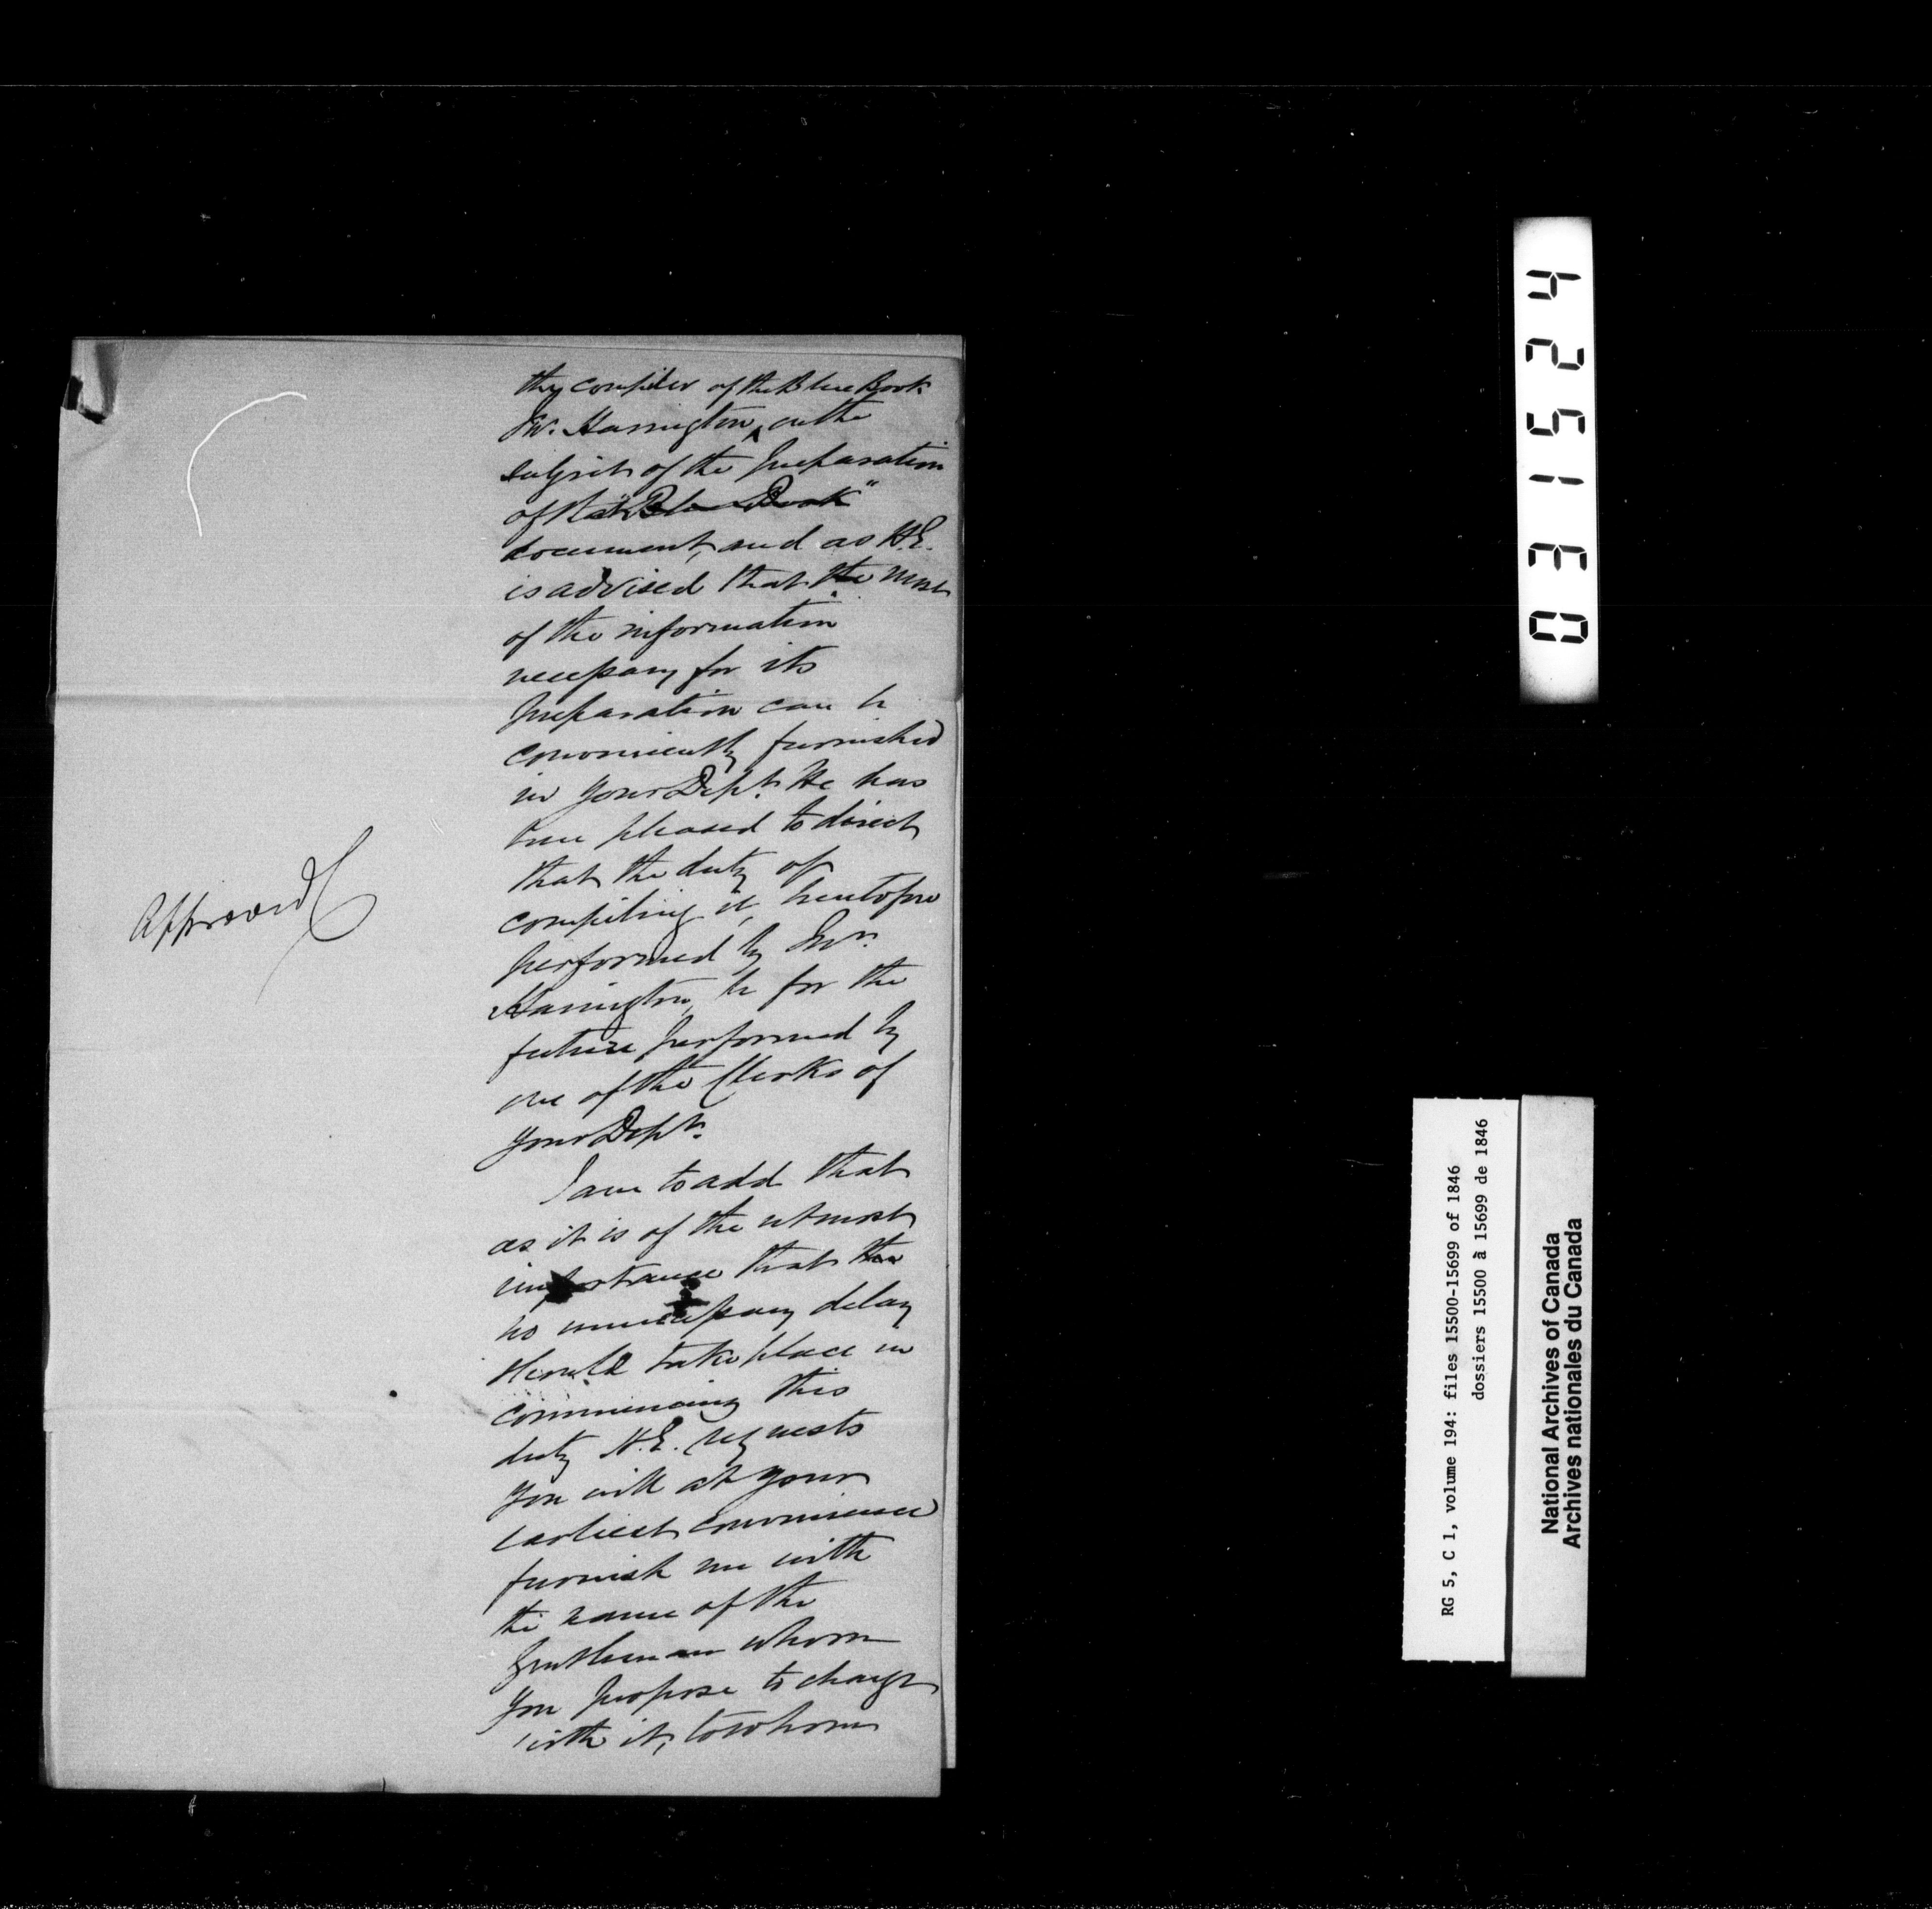 the compiler of the Blue Book
Mr. Harrington, on the
subject of the preparation
of that "Blue Book"
document, and as H.E.
is advised that the most
of the information
necessary for its
preparation can be
conveniently furnished
in your Dept. He has
been pleased to direct
that the duty of
compiling it, heretofore
performed by Mr.
Harrington, be for the
future performed by
one of the Clerks of
your Dept.
I am to add that
as it is of the utmost
importance that the
no unnecessary delay
should take place in
commencing this
duty H.E. requests
you will at your
earliest convenience
furnish me with
the name of the
gentleman whom
you propose to charge
with it, to whom
Approved
031524
RG 5, C 1, volume 194: files 15500-15699 of 1846
dossiers 15500 à 15699 de 1846
National Archives of Canada
Archives nationales du Canada